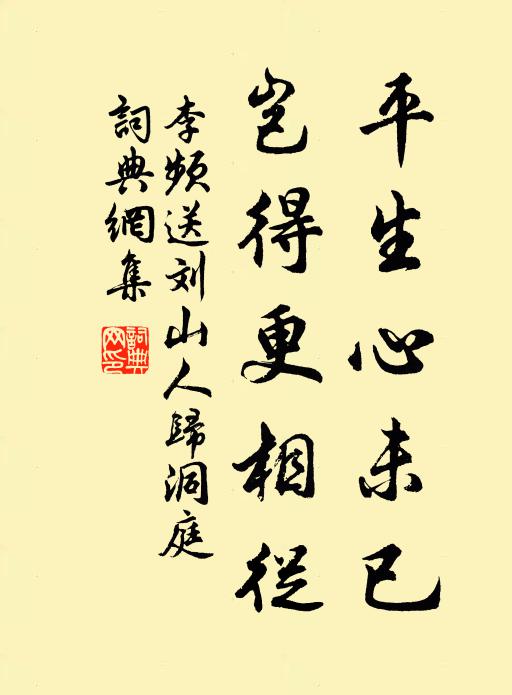 平生心未已
岂得更相從
李频送刘山人歸洞庭
詞典網集
詞典網印